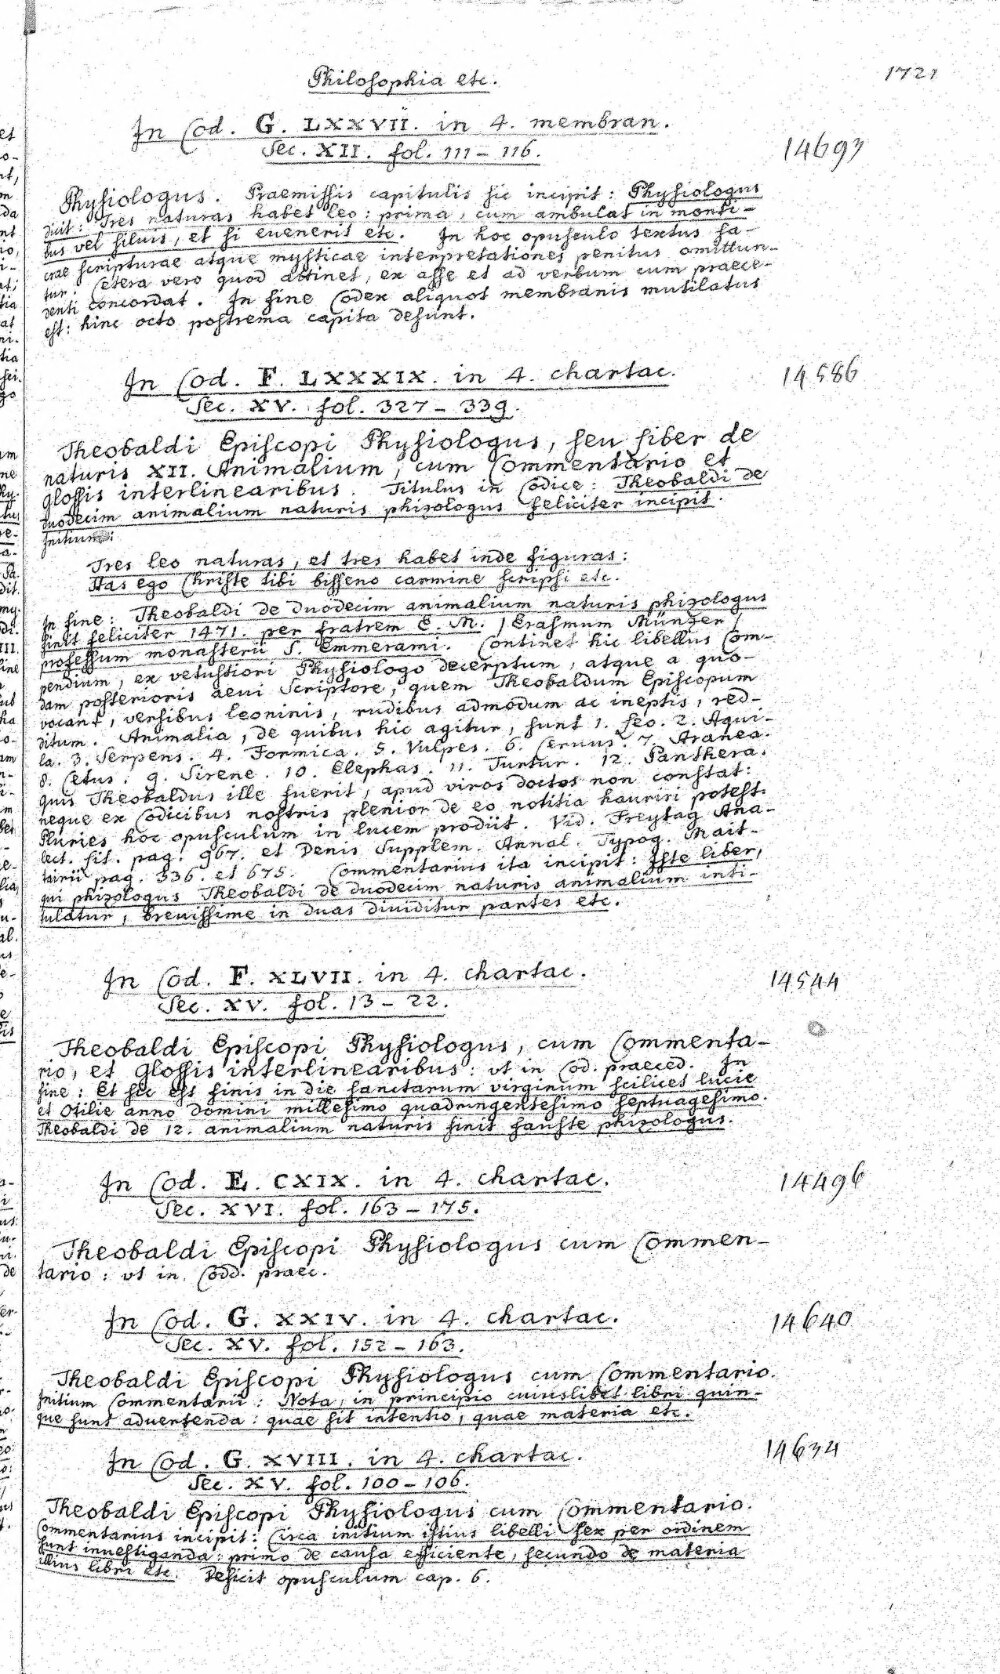 Philosophia etc.
1721
In Cod. G. LXXVII. in 4. membran.
Sec. XII. fol. 111–116.
14693
Physiologus. Praemissis capitulis sic incipit: Physiologus
dicit: Tres naturas habet leo: prima, cum ambulat in monti-
bus vel silvis, et si evenerit etc. In hoc opusculo textus sa-
crae scripturae atque mysticae interpretationes penitus omittun-
tur: Cetera vero quod attinet, ex asse et ad verbum cum praece-
denti concordat. In fine Codex aliquot membranis mutilatus
est: hinc octo postrema capita desunt.
In Cod. F. LXXXIX. in 4. chartac.
Sec. XV. fol. 327–339.
14586
Theobaldi Episcopi Physiologus, seu liber de
naturis XII. Animalium, cum Commentario et
glossis interlinearibus. Titulus in Codice: Theobaldi de
duodecim animalium naturis phizologus feliciter incipit.
Initium:
Tres leo naturas, et tres habet inde figuras:
Has ego Christe tibi bisseno carmine scripsi etc.
In fine: Theobaldi de duodecim animalium naturis phizologus
finit feliciter 1471. per fratrem E. M. (Erasmum Münzer)
professum monasterii S. Emmerami. Continet hic libellus Com-
pendium, ex vetustiori Physiologo decerptum, atque a quo-
dam posterioris aevi Scriptore, quem Theobaldum Episcopum
vocant, versibus leoninis, rudibus admodum ac ineptis, red-
ditum. Animalia, de quibus hic agitur, sunt 1. Leo. 2. Aqui-
la. 3. Serpens. 4. Formica. 5. Vulpes. 6. Cervus. 7. Aranea.
8. Cetus. 9. Sirene. 10. Elephas. 11. Turtur. 12. Panthera.
quis Theobaldus ille fuerit, apud viros doctos non constat:
neque ex Codicibus nostris plenior de eo notitia hauriri potest.
Pluries hoc opusculum in lucem prodiit. Vid. Freytag Ana-
lect. lit. pag. 967. et Denis Supplem. Annal. Typog. Mait-
tairii pag. 536. et 675. Commentarius ita incipit: Iste liber,
qui phizologus Theobaldi de duodecim naturis animalium inti-
tulatur, brevissime in duas dividitur partes etc.
In Cod. F. XLVII. in 4. chartac.
Sec. XV. fol. 13–22.
14544
Theobaldi Episcopi Physiologus, cum Commenta-
rio, et glossis interlinearibus: vt in Cod. praeced. In
fine: Et sic est finis in die sanctarum virginum scilicet lucie
et otilie anno domini millesimo quadringentesimo septuagesimo.
Theobaldi de 12. animalium naturis finit fauste phizologus.
In Cod. E. CXIX. in 4. chartac.
Sec. XVI. fol. 163–175.
14496
Theobaldi Episcopi Physiologus cum Commen-
tario: vt in Codd. praec.
In Cod. G. XXIV. in 4. chartac.
Sec. XV. fol. 152–163.
14640
Theobaldi Episcopi Physiologus cum Commentario.
Initium Commentarii: Nota, in principio cuiuslibet libri quin-
que sunt advertenda: quae sit intentio, quae materia etc.
In Cod. G. XVIII. in 4. chartac.
Sec. XV. fol. 100–106.
14634
Theobaldi Episcopi Physiologus cum Commentario.
Commentarius incipit: Circa initium istius libelli sex per ordinem
sunt investiganda: primo de causa efficiente, secundo de materia
illius libri etc. Deficit opusculum cap. 6.